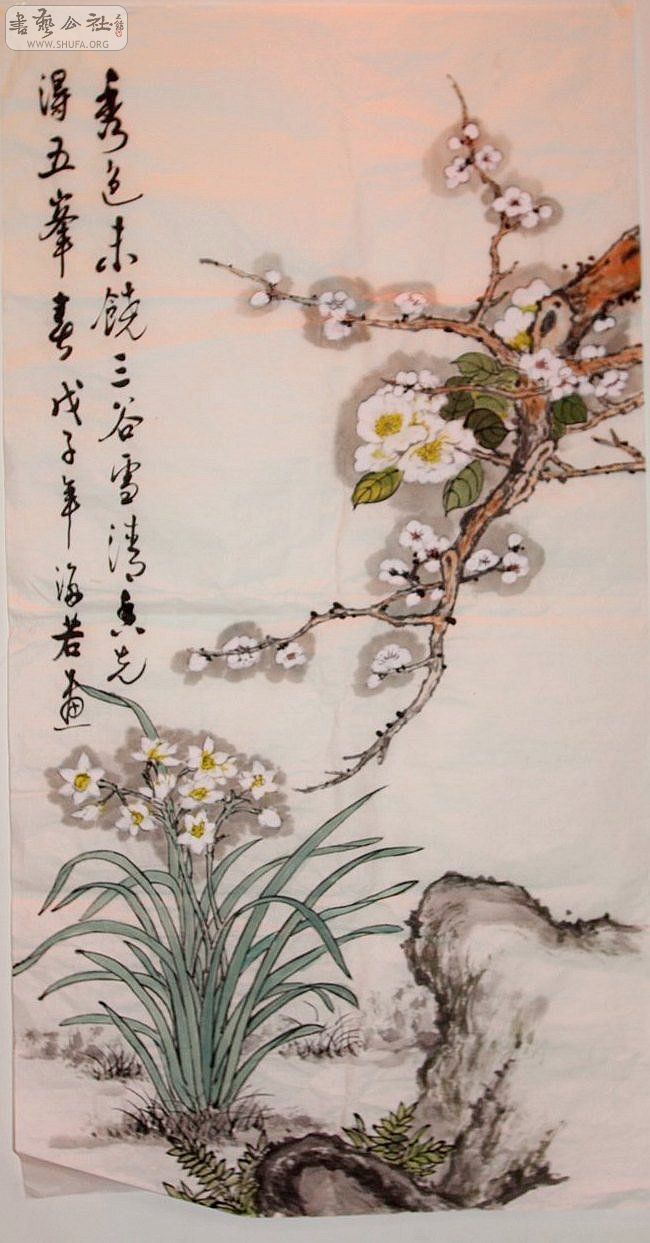 書藝公社
WWW.SHUFA.ORG
秀色未饒三谷雪清香先
得五峯春 戊子年 海若畫